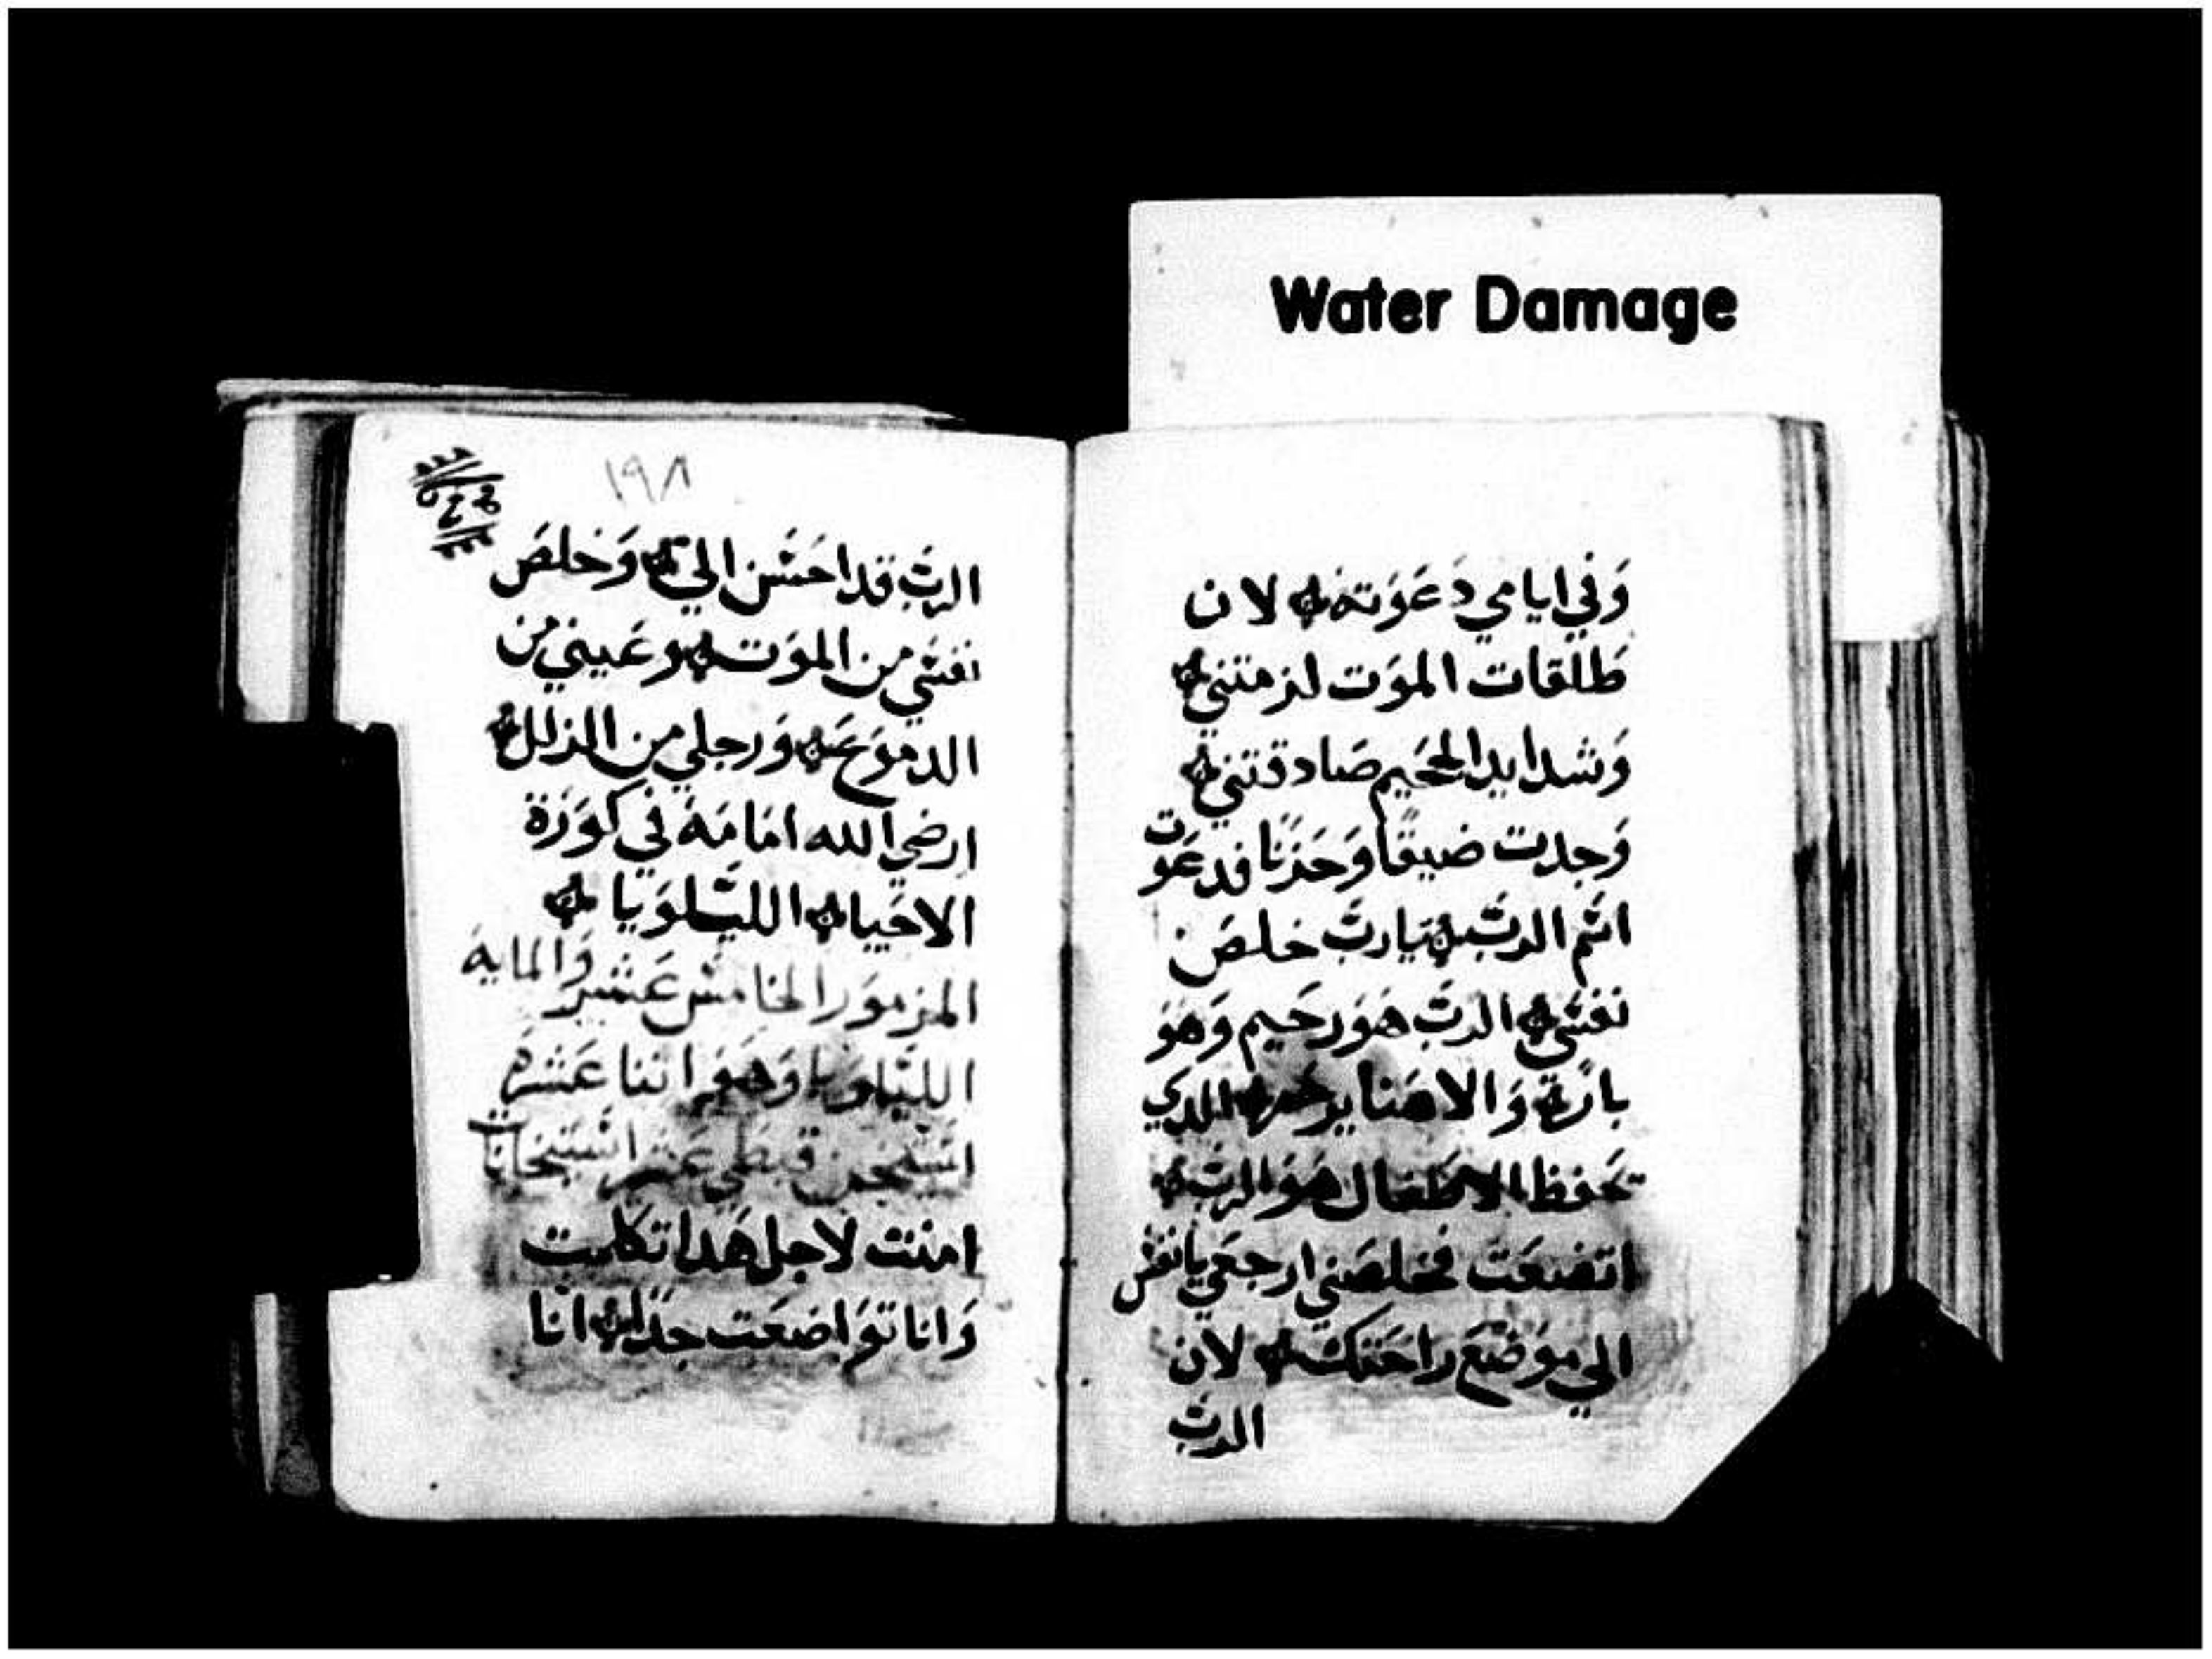 Water Damage
وَفي ايامي دَعَوَته لان
طلقات الموَت لزمتني
وَشدايد الجحيم صَادفتني
وَجدت ضيقًا وَحَزنا فدعَوت
اسْم الربّ يارَبّ خلصَ
نفسَي الربّ هوَ رحَيم وَهوَ
بارَ وَالاهنا يرحم الدي
يحفظ الاطفال هوَ الربّ
اتضعَت فخلصَني ارجعَي يا نفسَ
الي موَضعَ راحَتك لان
الربّ
١٩٨
الربّ قد احسَن الي وَخلصَ
نفسَي من الموَت وعَيني من
الدموَع وَرجلي من الزلل
ارضي الله امَامَه في كوَرَة
الاحَيا الليلوَيا
المزموَر الخامسَ عَشر وَالمايه
الليلويا وَهوَ اتنا عَشرَه
استيخن قبطي عشر استيخانات
امنت لاجل هَدا تكلمت
وَانا توَاضعَت جدَا انا